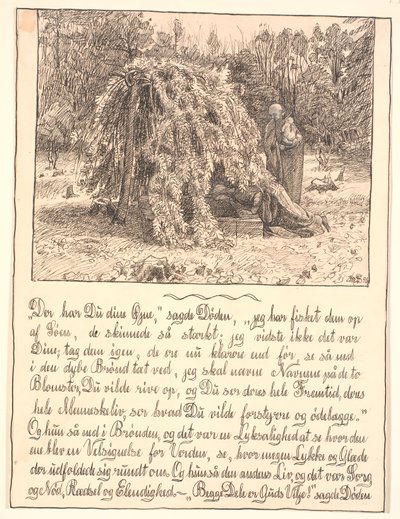 „Der har Du dine Øjne," sagde Döden, „jeg har fisket dem op
af Söen, de skinnede så stærkt; jeg vidste ikke det var
Dine; tag dem igen, de ere nu klarere end för, se så ned
i den dybe Brønd tæt ved, jeg skal nævne Navnene på de to
Blomster, Du vilde rive op, og Du ser deres hele Fremtid, deres
hele Menneskeliv, ser hvad Du vilde forstyrre og ödelægge."
Og hun så ned i Brønden, og det var en Lyksalighed at se, hvor den
ene blev en Velsignelse for Verden, se, hvor megen Lykke og Glæde
der udfoldede sig rundt om. Og hun så den andens Liv, og det var Sorg
og Nöd, Rædsel og Elendighed. – „Begge Dele er Guds Vilje!" sagde Döden